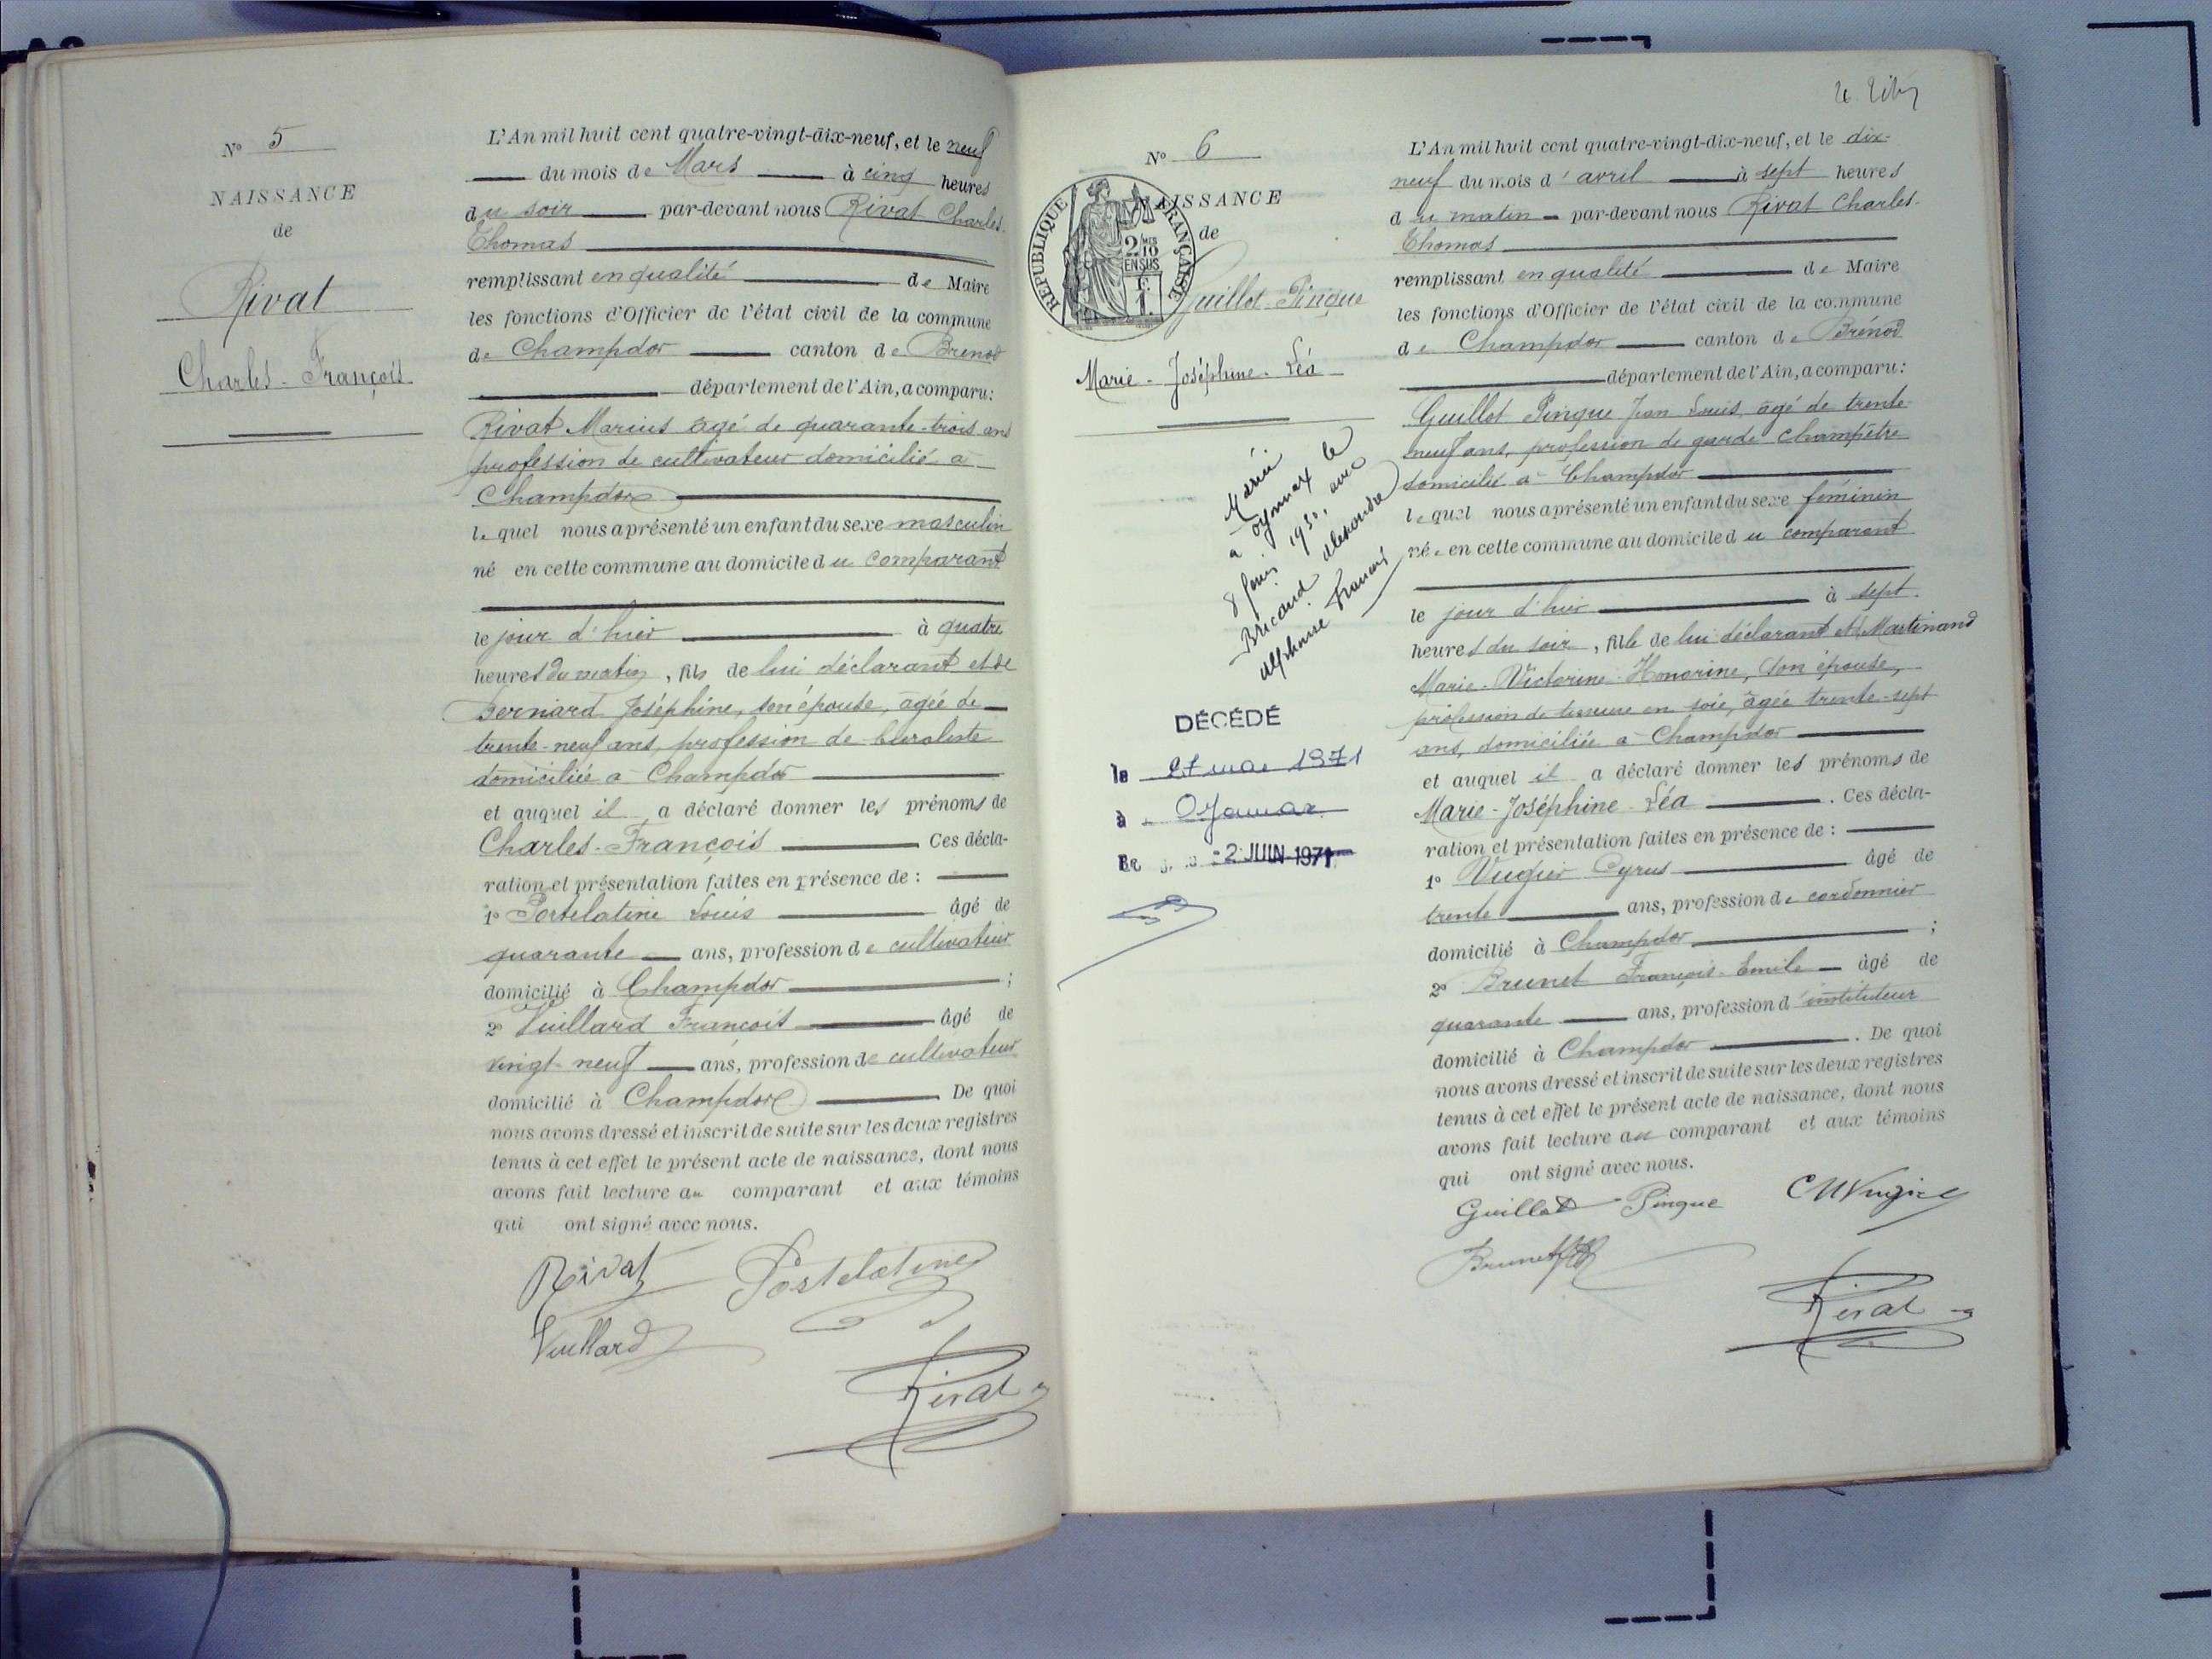 N° 5
NAISSANCE
de
Rivat
Charles-François
L'An mil huit cent quatre-vingt-dix-neuf, et le neuf
du mois de Mars à cinq heures
du soir par-devant nous Rivat Charles-
Thomas
remplissant en qualité de Maire
les fonctions d'Officier de l'état civil de la commune
de Champdor canton de Brénod
département de l'Ain, a comparu:
Rivat Marius âgé de quarante-trois ans
profession de cultivateur domicilié à
Champdor
lequel nous a présenté un enfant du sexe masculin
né en cette commune au domicile du comparant
le jour d'hier à quatre
heures du matin, fils de lui déclarant et de
Bernard Joséphine, son épouse, âgée de
trente-neuf ans, profession de buraliste
domiciliée à Champdor
et auquel il a déclaré donner les prénoms de
Charles-François Ces décla-
ration et présentation faites en présence de :
1° Postelatine Louis âgé de
quarante ans, profession de cultivateur
domicilié à Champdor ;
2° Vuillard François âgé de
vingt-neuf ans, profession de cultivateur
domicilié à Champdor De quoi
nous avons dressé et inscrit de suite sur les deux registres
tenus à cet effet le présent acte de naissance, dont nous
avons fait lecture au comparant et aux témoins
qui ont signé avec nous.
Rivat Postelatine
Vuillard
Rivat
N° 6
NAISSANCE
de
RÉPUBLIQUE FRANÇAISE
2/10 EN SUS
Guillot-Pingue
Marie-Joséphine-Léa
Mariée
à Oyonnax le
8 1930, avec
Bricaud Alexandre
Alphonse François
DÉCÉDÉ
le 27 mai 1971
à Oyonnax
Le -2 JUIN 1971
L'An mil huit cent quatre-vingt-dix-neuf, et le dix-
neuf du mois d'avril à sept heures
du matin par-devant nous Rivat Charles-
Thomas
remplissant en qualité de Maire
les fonctions d'Officier de l'état civil de la commune
de Champdor canton de Brénod
département de l'Ain, a comparu:
Guillot Pingue Jean Louis âgé de trente-
neuf ans, profession de garde champêtre
domicilié à Champdor
lequel nous a présenté un enfant du sexe féminin
née en cette commune au domicile du comparant
le jour d'hier à sept
heures du soir, fille de lui déclarant et Martinand
Marie-Victorine-Honorine, son épouse,
profession de tisseuse en soie, âgée trente-sept
ans, domiciliée à Champdor
et auquel il a déclaré donner les prénoms de
Marie-Joséphine-Léa . Ces décla-
ration et présentation faites en présence de :
1° Vugier Cyrus âgé de
trente ans, profession de cordonnier
domicilié à Champdor ;
2° Brunet François-Emile âgé de
quarante ans, profession d'instituteur
domicilié à Champdor . De quoi
nous avons dressé et inscrit de suite sur les deux registres
tenus à cet effet le présent acte de naissance, dont nous
avons fait lecture au comparant et aux témoins
qui ont signé avec nous.
Guillot Pingue
Brunet
Rivat